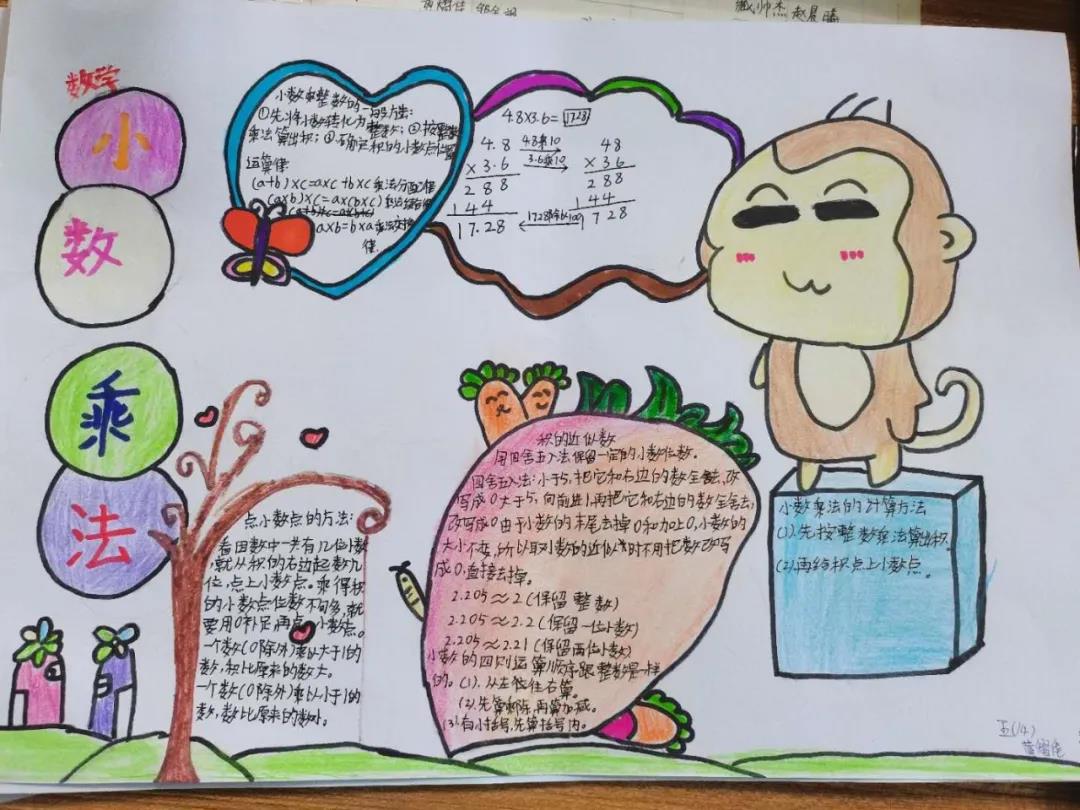 臧帅杰 赵晨曦
数学
小
数
乘
法
小数乘整数的一般方法:
①先将小数转化为整数;②按整数
乘法算出积;③确定积的小数点位置
运算律
(a+b)×c=a×c+b×c 乘法分配律
(a×b)×c=a×(b×c)
a×b=b×a 乘法交换
律.
4.8×3.6=17.28
4.8 4.8乘10 48
×3.6 3.6乘10 ×36
288 288
144 144
17.28 1728
积的近似数
用四舍五入法保留一定的小数位数。
四舍五入法:小于5,把它和右边的数全舍去,改
写成0大于5,向前进1,再把它和右边的数全舍去,
改写成0由于小数的末尾去掉0和加上0,小数的
大小不变,所以取小数的近似数时不用把数改写
成0,直接去掉。
2.205≈2(保留整数)
2.205≈2.2(保留一位小数)
2.205≈2.21(保留两位小数)
小数的四则运算顺序跟整数是一样
的。(1).从左往右算。
(2).先算乘除,再算加减。
(3).有小括号,先算括号内。
小数乘法的计算方法
(1).先按整数乘法算出积.
(2).再给积点上小数点。
点小数点的方法:
看因数中一共有几位小数
,就从积的右边起数几
位,点上小数点。乘得积
的小数点位数不够,就
要用0补足再点小数点。
一个数(0除外)乘以大于1的
数,积比原来的数大。
一个数(0除外)乘以小于1的
数,数比原来的数小。
五(14)